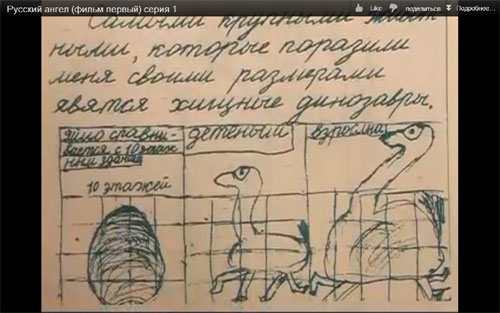 Русский ангел (фильм первый) серия 1 Like поделиться Подробнее...
Самыми крупными живот
ными, которые поразили
меня своими размерами
явятся хищные динозавры.
яйцо сравни-
вается с 10 этаж
детеныш
10 этажей